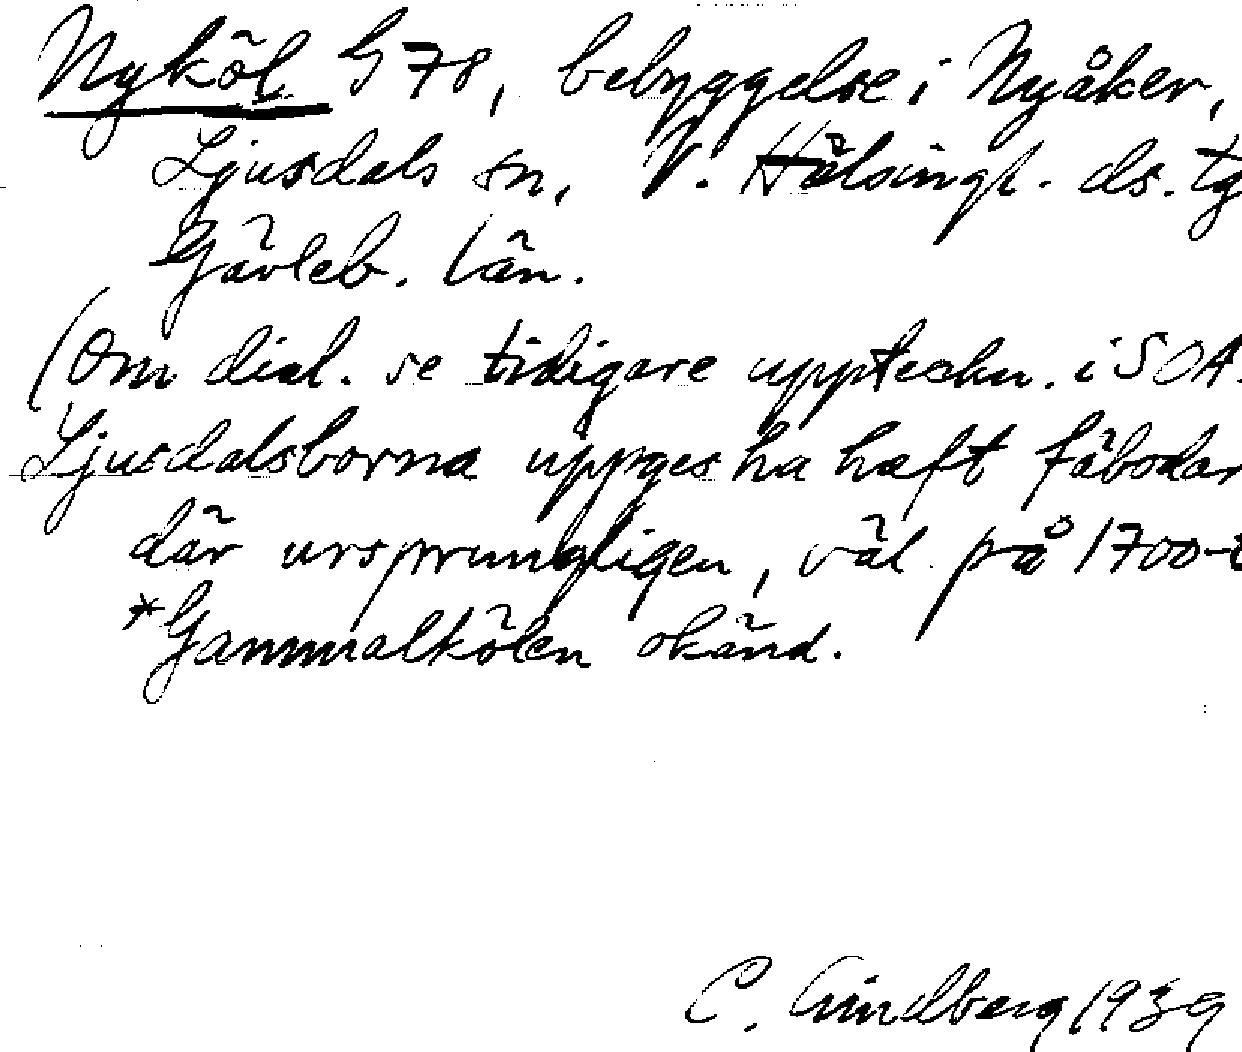 Nyköl G 78, bebyggelse i Nyåker,
Ljusdals sn, V. Hälsingl. ds. tg
Gävleb. län.
(Om dial. se tidigare uppteckn. i SOA.
Ljusdalsborna uppges ha haft fäbodar
där ursprungligen, väl på 1700-t
*Gammalkölen okänd.
C. Lindberg 1939